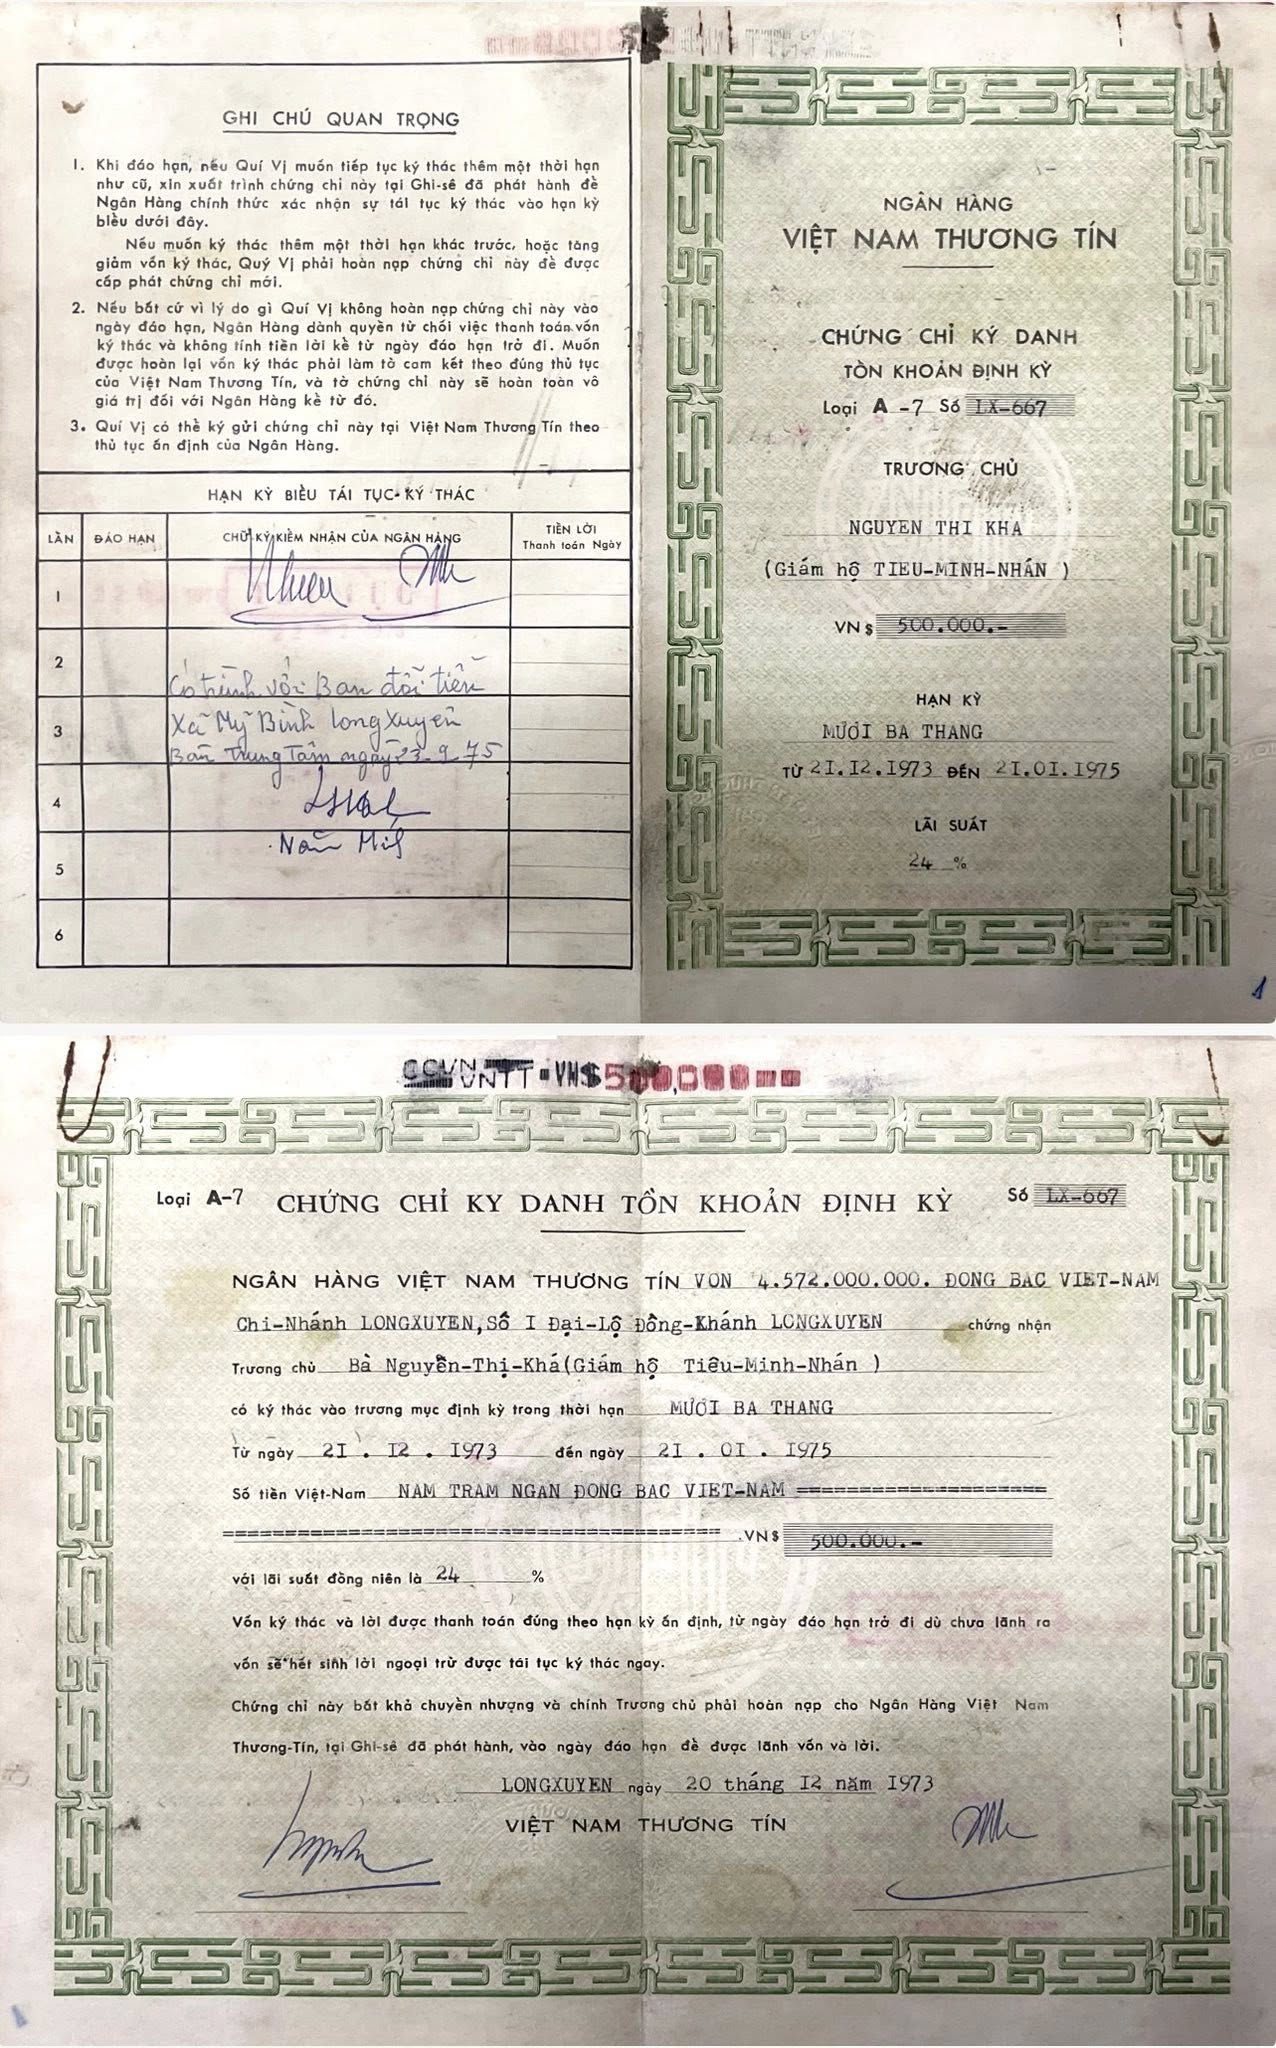 GHI CHÚ QUAN TRỌNG
1. Khi đáo hạn, nếu Quí Vị muốn tiếp tục ký thác thêm một thời hạn
như cũ, xin xuất trình chứng chỉ này tại Ghi-sê đã phát hành để
Ngân Hàng chính thức xác nhận sự tái tục ký thác vào hạn kỳ
biểu dưới đây.
Nếu muốn ký thác thêm một thời hạn khác trước, hoặc tăng
giảm vốn ký thác, Quý Vị phải hoàn nạp chứng chỉ này để được
cấp phát chứng chỉ mới.
2. Nếu bất cứ vì lý do gì Quí Vị không hoàn nạp chứng chỉ này vào
ngày đáo hạn, Ngân Hàng dành quyền từ chối việc thanh toán vốn
ký thác và không tính tiền lời kể từ ngày đáo hạn trở đi. Muốn
được hoàn lại vốn ký thác phải làm tờ cam kết theo đúng thủ tục
của Việt Nam Thương Tín, và tờ chứng chỉ này sẽ hoàn toàn vô
giá trị đối với Ngân Hàng kể từ đó.
3. Quí Vị có thể ký gửi chứng chỉ này tại Việt Nam Thương Tín theo
thủ tục ấn định của Ngân Hàng.
HẠN KỲ BIỂU TÁI TỤC KÝ THÁC
LẦN ĐÁO HẠN CHỮ KÝ KIỂM NHẬN CỦA NGÂN HÀNG TIỀN LỜI
Thanh toán Ngày
1
2
Có trình với Ban đổi tiền
3
Xã Mỹ Bình Long Xuyên
Bàn Trung Tâm ngày 23-9-75
4
5
6
NGÂN HÀNG
VIỆT NAM THƯƠNG TÍN
CHỨNG CHỈ KÝ DANH
TỒN KHOẢN ĐỊNH KỲ
Loại A -7 Số LX-667
TRƯƠNG CHỦ
NGUYEN THI KHA
(Giám hộ TIEU-MINH-NHÁN )
VN$ 500.000.-
HẠN KỲ
MƯƠI BA THANG
TỪ 21.12.1973 ĐẾN 21.01.1975
LÃI SUẤT
24 %
1
CCVN VNTT VN$500,000
Loại A-7 CHỨNG CHỈ KY DANH TỒN KHOẢN ĐỊNH KỲ Số LX-667
NGÂN HÀNG VIỆT NAM THƯƠNG TÍN VON 4.572.000.000. ĐONG BAC VIET-NAM
Chi-Nhánh LONGXUYEN, Số I Đại-Lộ Đồng-Khánh LONGXUYEN chứng nhận
Trương chủ Bà Nguyễn-Thị-Khá(Giám hộ Tiêu-Minh-Nhán )
có ký thác vào trương mục định kỳ trong thời hạn MƯƠI BA THANG
Từ ngày 2I . I2 . I973 đến ngày 2I . 0I . I975
Số tiền Việt-Nam NAM TRAM NGAN ĐONG BAC VIET-NAM ====================
======================================== VN$ 500.000.-
với lãi suất đồng niên là 24 %
Vốn ký thác và lời được thanh toán đúng theo hạn kỳ ấn định, từ ngày đáo hạn trở đi dù chưa lãnh ra
vốn sẽ hết sinh lời ngoại trừ được tái tục ký thác ngay.
Chứng chỉ này bất khả chuyển nhượng và chính Trương chủ phải hoàn nạp cho Ngân Hàng Việt Nam
Thương-Tín, tại Ghi-sê đã phát hành, vào ngày đáo hạn để được lãnh vốn và lời.
LONGXUYEN ngày 20 tháng I2 năm I973
VIỆT NAM THƯƠNG TÍN